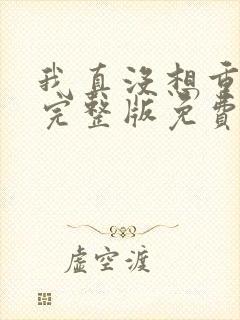 我真没想重
完整版免费
虚空渡